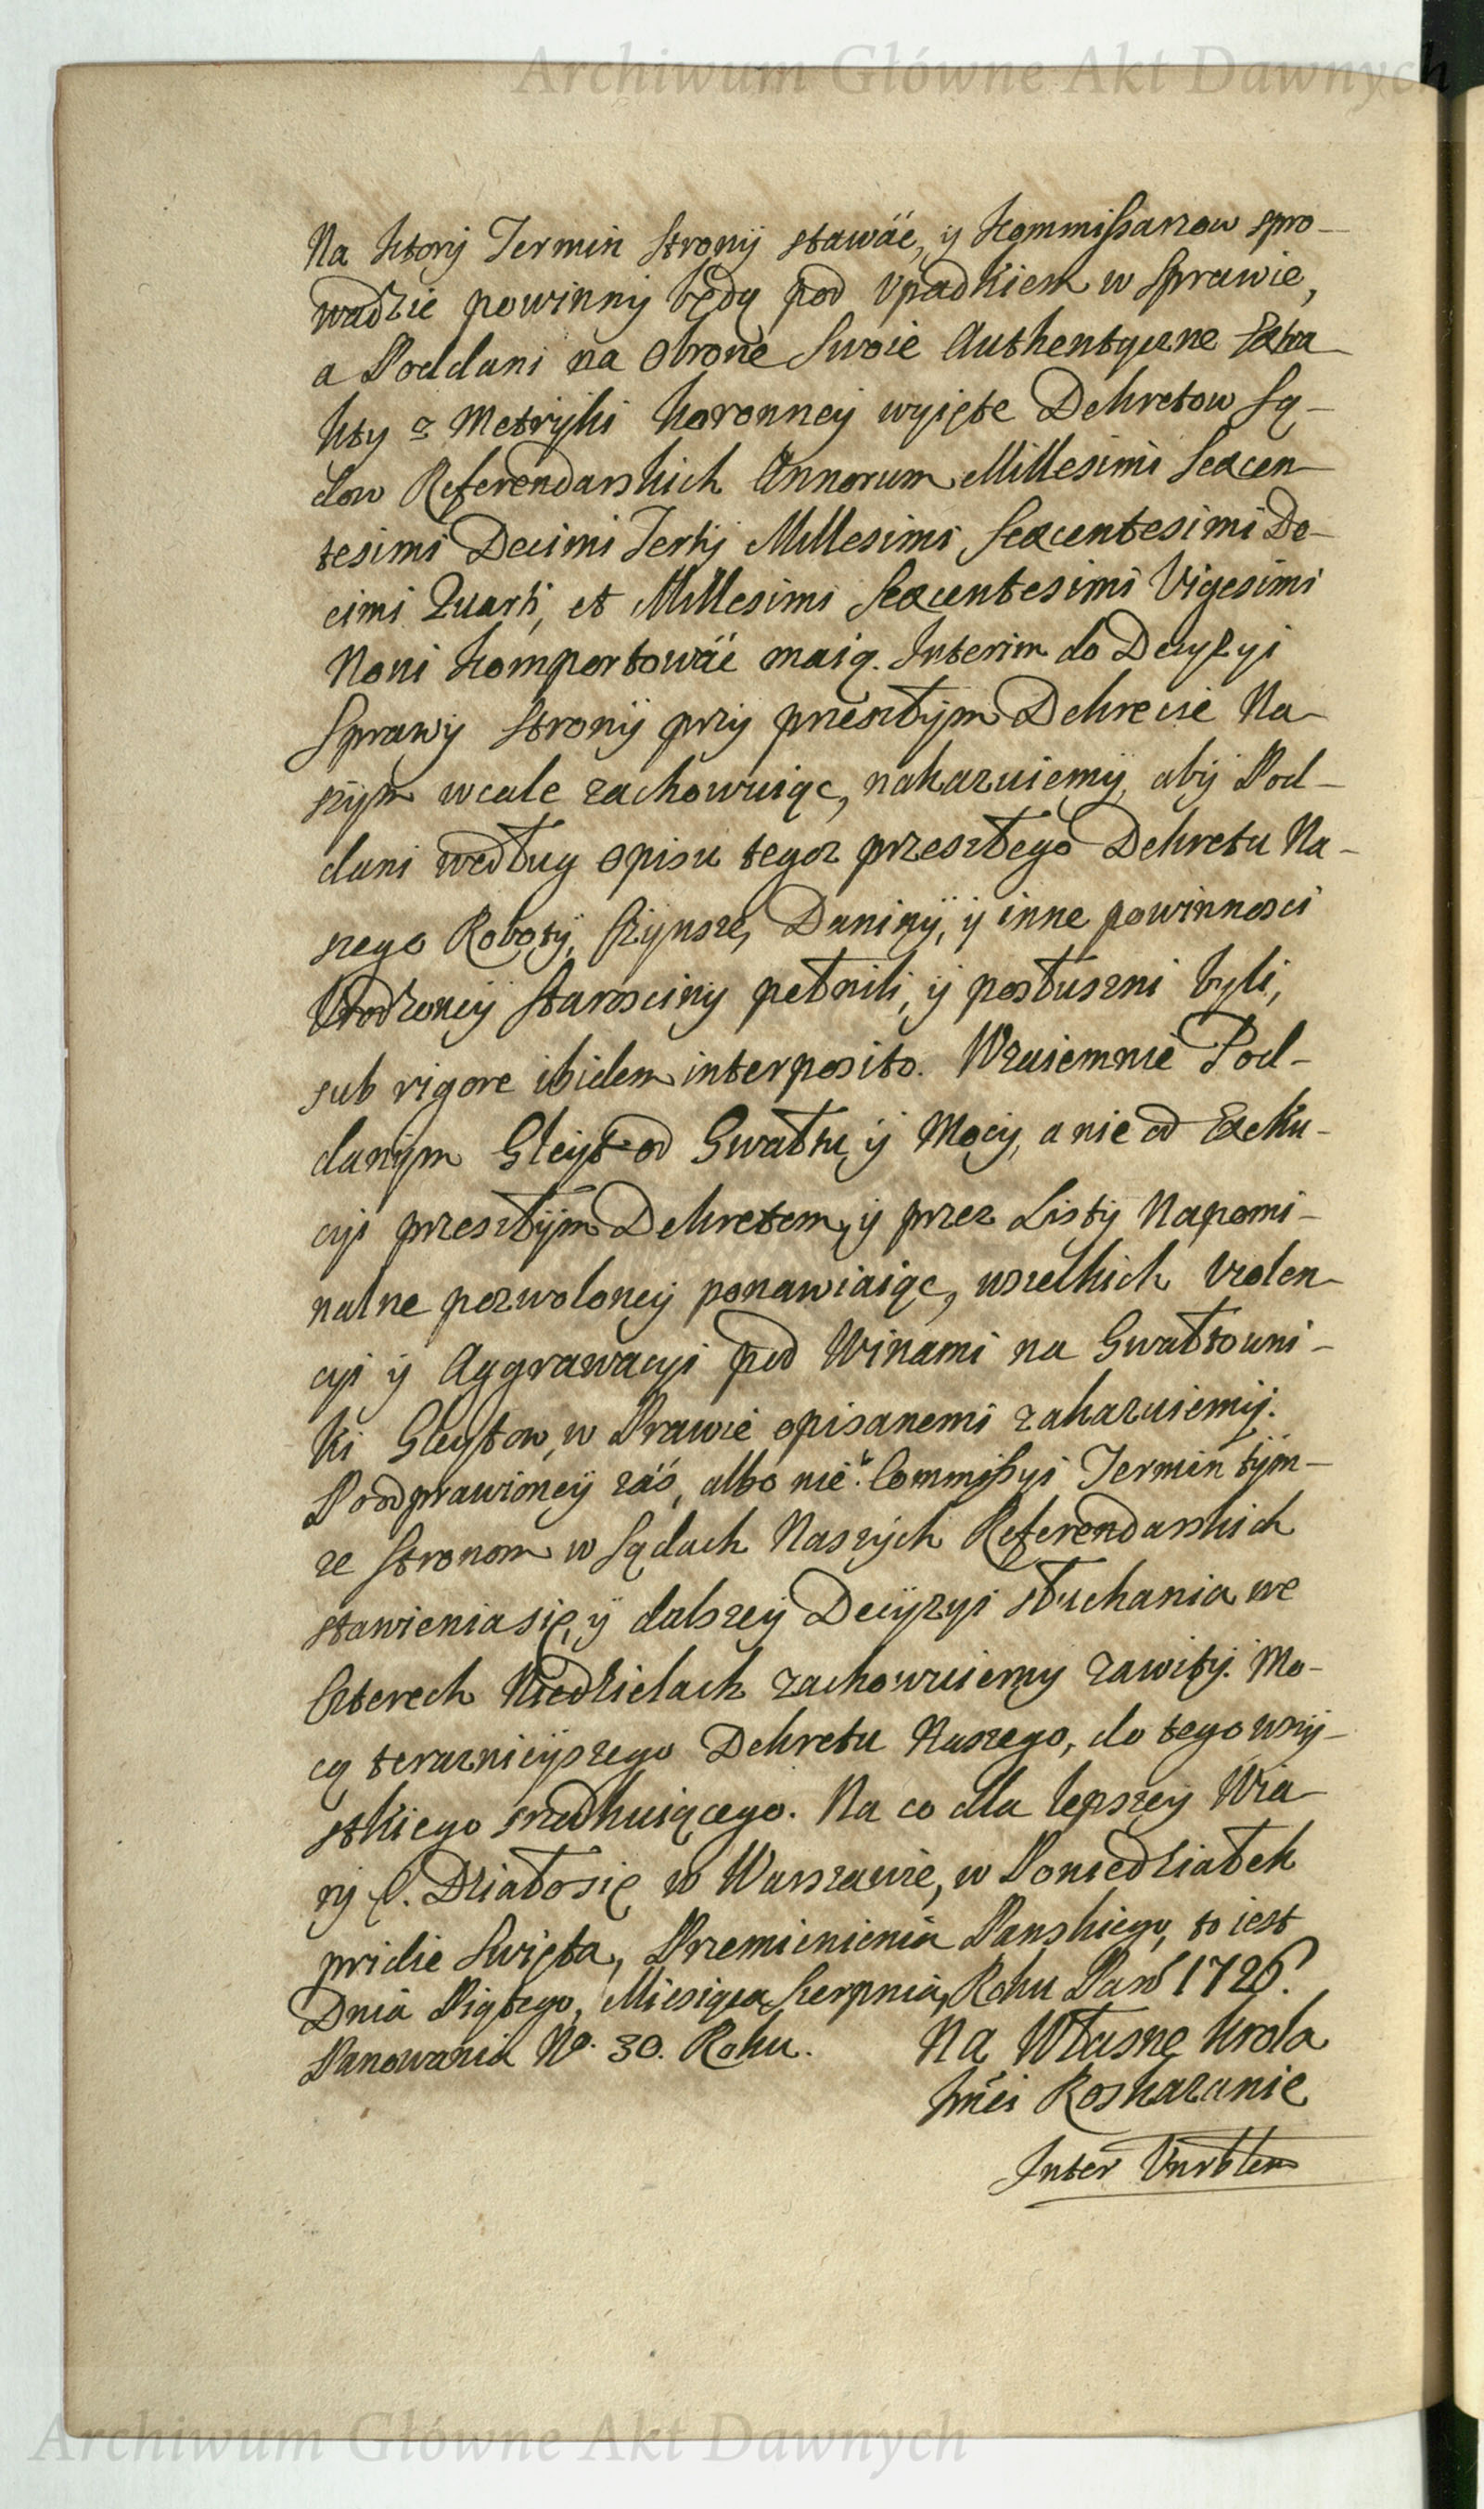 Archiwum Główne Akt Dawnych
Na ktory Termin Strony stawać, y Kommissarzow spro-
wadzic powinny będą pod Upadkiem w Sprawie,
a Poddani na Obronę Swoię Authentyczne Extra
kty z Metryki Koronney wyięte Dekretow Są-
dow Referendarskich Annorum Millesimi Sexcen-
tesimi Decimi Tertij Millesimi Sexcentesimi De-
cimi Quarti, et Millesimi Sexcentesimi Vigesimi
Noni komportować maią. Interim do Decyzyi
Sprawy Strony przy przeszłym Dekrecie Na-
szym wcale zachowuiąc, nakazuiemy, aby Pod-
dani według opisu tegoz przeszłego Dekretu Na-
szego Roboty, Czynsze, Daniny, y inne powinnosci
Urodzoney Starosciny pełnili, y posłuszni byli,
sub rigore ibidem interposito. Wzaiemnie Pod-
danym Gleyt od Gwałtu, y Mocy, a nie od Exeku-
cyi przeszłym Dekretem, y przez Listy Napomi-
nalne pozwoloney ponawiaiąc, wszelkich Violen-
cyi y Aggrawacyi pod Winami na Gwałtowni-
ki Gleytow, w Prawie opisanemi zakazuiemy.
Po odprawioney zaś, albo nie. Commissyi Termin tym-
ze Stronom w Sądach Naszych Referendarskich
stawienia się, y dalszey Decyzyi słuchania we
Czterech Niedzielach zachowuiemy zawity. Mo-
cą teraznieyszego Dekretu Naszego, do tego wszy-
stkiego srzodkuiącego. Na co dla lepszey Wia-
ry &. Działo się w Warszawie, w Poniedziałek
pridie Swięta, Przemienienia Panskiego, to iest
Dnia Piątego, Miesiąca Sierpnia, Roku Pań 1726.
Panowania No. 30. Roku. Na Własne Krola
Jmći Roskazanie
Inter
Archiwum Główne Akt Dawnych